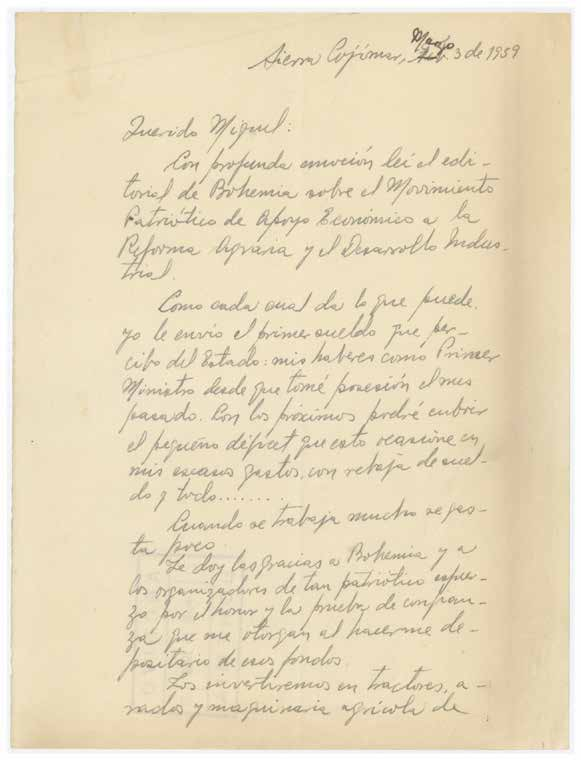 Sierra Cojímar, Marzo 3 de 1959
Querido Miguel:
Con profunda emoción leí el edi-
torial de Bohemia sobre el Movimiento
Patriótico de Apoyo Económico a la
Reforma Agraria y el Desarrollo Indus-
trial.
Como cada cual da lo que puede,
yo le envío el primer sueldo que per-
cibo del Estado: mis haberes como Primer
Ministro desde que tomé posesión el mes
pasado. Con los próximos podré cubrir
el pequeño déficit que esto ocasione en
mis escasos gastos, con rebaja de suel-
do y todo........
Cuando se trabaja mucho se gas-
ta poco.
Le doy las gracias a Bohemia y a
los organizadores de tan patriótico esfuer-
zo por el honor y la prueba de confian-
za que me otorgan al hacerme de-
positario de esos fondos.
Los invertiremos en tractores, a-
rados y maquinaria agrícola de